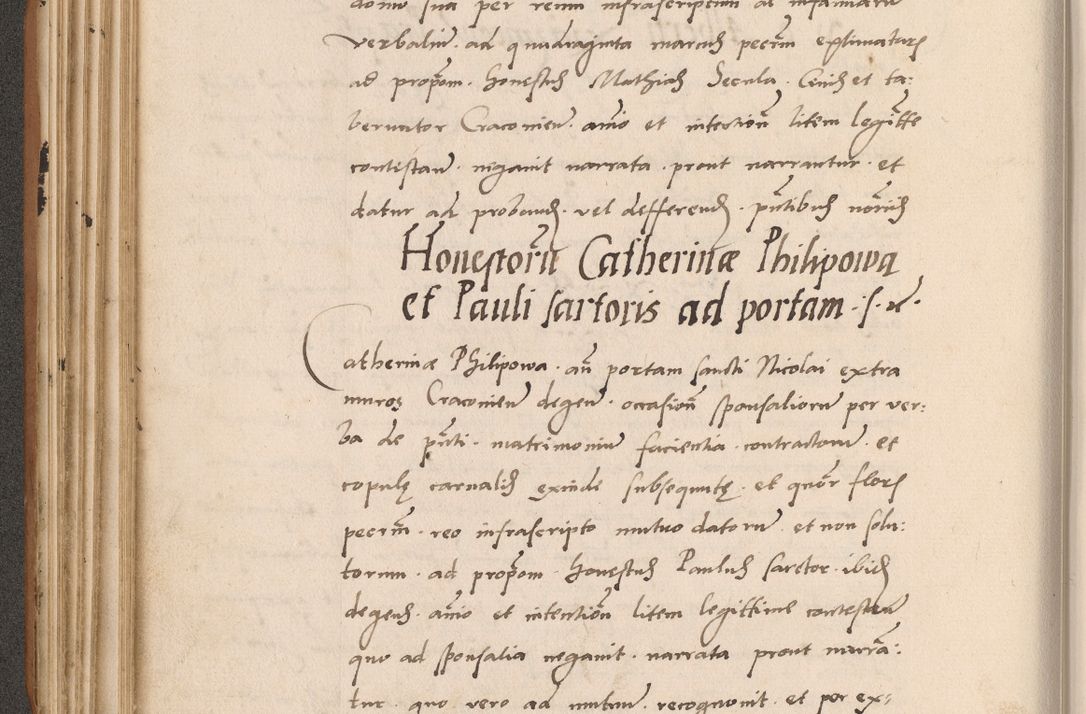 domo sua per reum infrascriptum ac infamiam
verbaliu. ad quadraginta marcas pecm̃ extimatarꝭ
ad propoñ. honestus Mathias Secula. Ceniẽ et ta-
bernator Cracovien. aĩo et intention̄ litem legitte
contestan̄. negavit narrata. prout narrantur. et
datur ad proband. vel defferend. pñtibus nõiẽ
Honestorũ Catherinæ Philipowa
et Pauli sartoris ad portam. S. N.
Catherinæ Philipowa. añ portam sancti Nicolai extra
muros Cracovien̄ degen̄. occasion̄ sponsaliorū per ver:
ba de pñti. matrimoniũ facientia. contractorũ. et
copulę carnalis exinde subsequutę. et quõr florꝭ
pecm̃. reo infrascripto mutuo datorũ. et non solu:
torum. ad propoñ. honestus Paulus sarctor. ibidẽ
degens. aĩo et intention̄ litem legittime contestan̄
quo ad sponsalia negavit. narrata prout narrã:
tur. quo vero ad mutuũ. recognovit. et per ex: